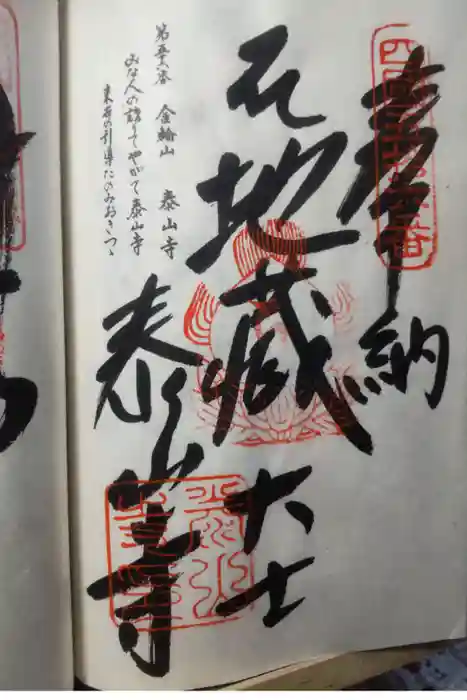 奉納
四國五十六番
地蔵大士
泰山寺
第五六番 金輪山 泰山寺
みな人の詣りてやがて泰山寺
来世の引導たのみおきつゝ